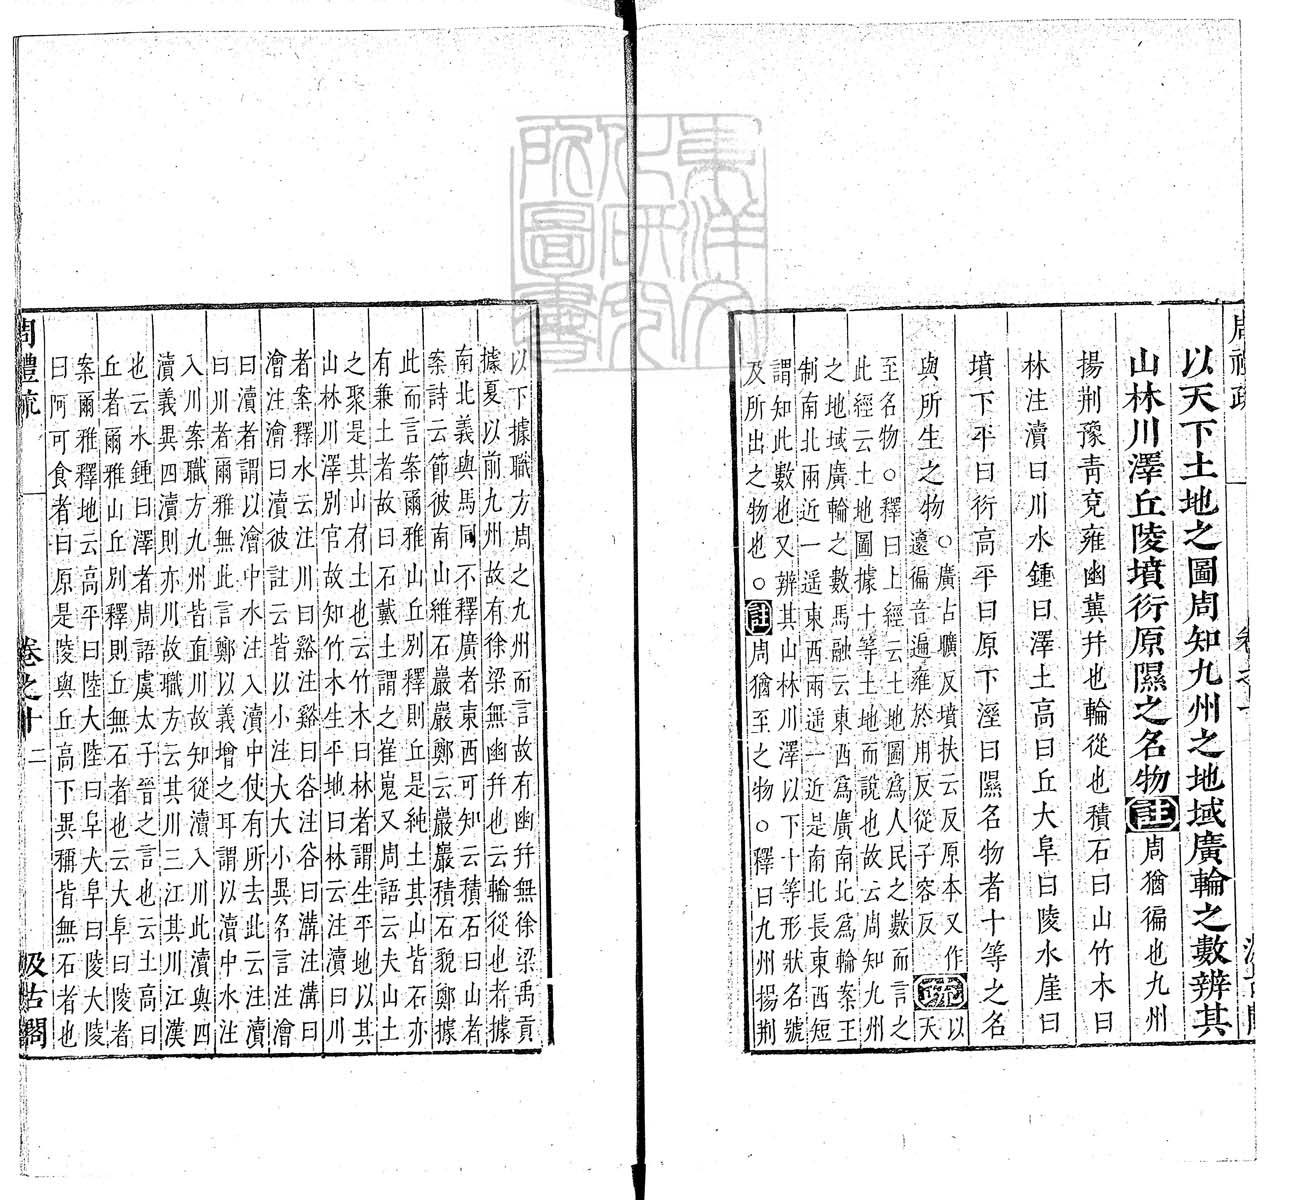 周禮疏 卷之十 汲古閣
以天下土地之圖周知九州之地域廣輪之數辨其
山林川澤丘陵墳衍原隰之名物註周猶徧也九州
揚荆豫靑兗雍幽冀幷也輪從也積石曰山竹木曰
林注瀆曰川水鍾曰澤土高曰丘大阜曰陵水崖曰
墳下平曰衍高平曰原下溼曰隰名物者十等之名
與所生之物○廣古曠反墳扶云反原本又作
邍徧音遍雍於用反從子容反疏以天
至名物○釋曰上經云土地圖爲人民之數而言之
此經云土地圖據十等土地而說也故云周知九州
之地域廣輪之數馬融云東西爲廣南北爲輪案王
制南北兩近一遥東西兩遥一近是南北長東西短
謂知此數也又辨其山林川澤以下十等形狀名號
及所出之物也○註周猶至之物○釋曰九州揚荆
以下據職方周之九州而言故有幽幷無徐梁禹貢
據夏以前九州故有徐梁無幽幷也云輪從也者據
南北義與馬同不釋廣者東西可知云積石曰山者
案詩云節彼南山維石巖巖鄭云巖巖積石貌鄭據
此而言案爾雅山丘別釋則丘是純土其山皆石亦
有兼土者故曰石戴土謂之崔嵬又周語云夫山土
之聚是其山有土也云竹木曰林者謂生平地以其
山林川澤別官故知竹木生平地曰林云注瀆曰川
者案釋水云注川曰谿注谿曰谷注谷曰溝注溝曰
澮注澮曰瀆彼註云皆以小注大大小異名言注澮
曰瀆者謂以澮中水注入瀆中使有所去此云注瀆
曰川者爾雅無此言鄭以義增之耳謂以瀆中水注
入川案職方九州皆直川故知從瀆入川此瀆與四
瀆義異四瀆則亦川故職方云其川三江其川江漢
也云水鍾曰澤者周語虞太子晉之言也云土高曰
丘者爾雅山丘別釋則丘無石者也云大阜曰陵者
案爾雅釋地云高平曰陸大陸曰阜大阜曰陵大陵
曰阿可食者曰原是陵與丘高下異稱皆無石者也
周禮疏 卷之十 二 汲古閣
東洋文化研究所圖書